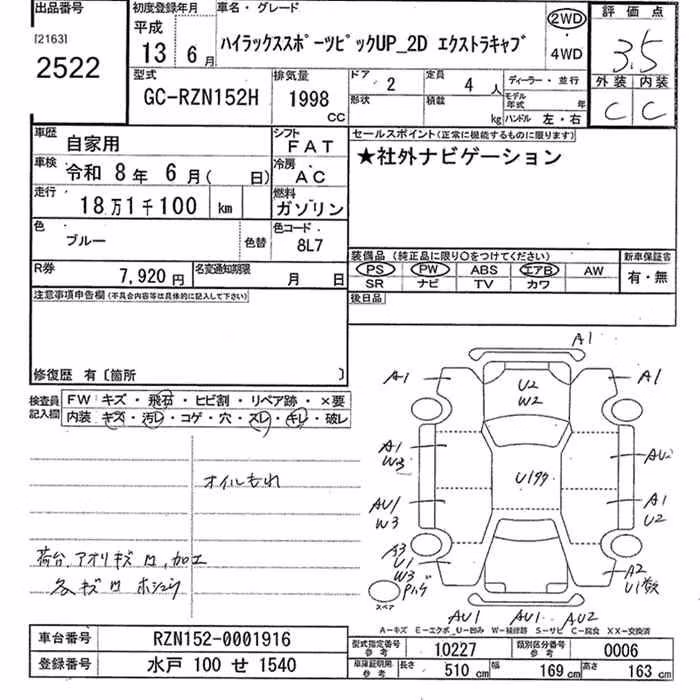 出品番号
[2163]
2522
初度登録年月
平成
13 6月
車名・グレード
ハイラックススポーツピックUP_2D エクストラキャブ
2WD
・
4WD
評価点
3.5
外装 内装
C C
型式
GC-RZN152H
排気量
1998 CC
ドア 2
定員 4 人
形状
積載 kg
ディーラー・並行
モデル年式 年
ハンドル 左・右
車歴 自家用
シフト FAT
車検 令和 8年 6月( 日)
冷房 AC
走行 18万1千100 km
燃料 ガソリン
色 ブルー 色替
色コード 8L7
R券 7,920円
名変通知期限 月 日
セールスポイント(正常に機能するものに限ります)
★社外ナビゲーション
装備品(純正品に限り○をつけてください)
PS PW ABS エアB AW
SR ナビ TV カワ
新車保証書
有・無
後日品
注意事項申告欄(不具合内容等は具体的に記入して下さい)
修復歴 有〔箇所 〕
検査員記入欄
FW キズ・飛石・ヒビ割・リペア跡・×要
内装 キズ・汚レ・コゲ・穴・スレ・キレ・破レ
オイルもれ
荷台,アオリキズ凹,加工
各キズ凹
A1
A1
U2
W2
A1
A1
W3
AU2
Uタタ
AU1
W3
A1
U2
A3
U1
W3
A2
U1数
スペア
AU1 AU1 AU2
A-キズ E-エクボ U-凹み W-補修跡 S-サビ C-腐食 XX-交換済
車台番号 RZN152-0001916
登録番号 水戸 100 せ 1540
型式指定番号 参考 10227
類別区分番号 参考 0006
車庫証明用 参考 長さ 510 cm 幅 169 cm 高さ 163 cm